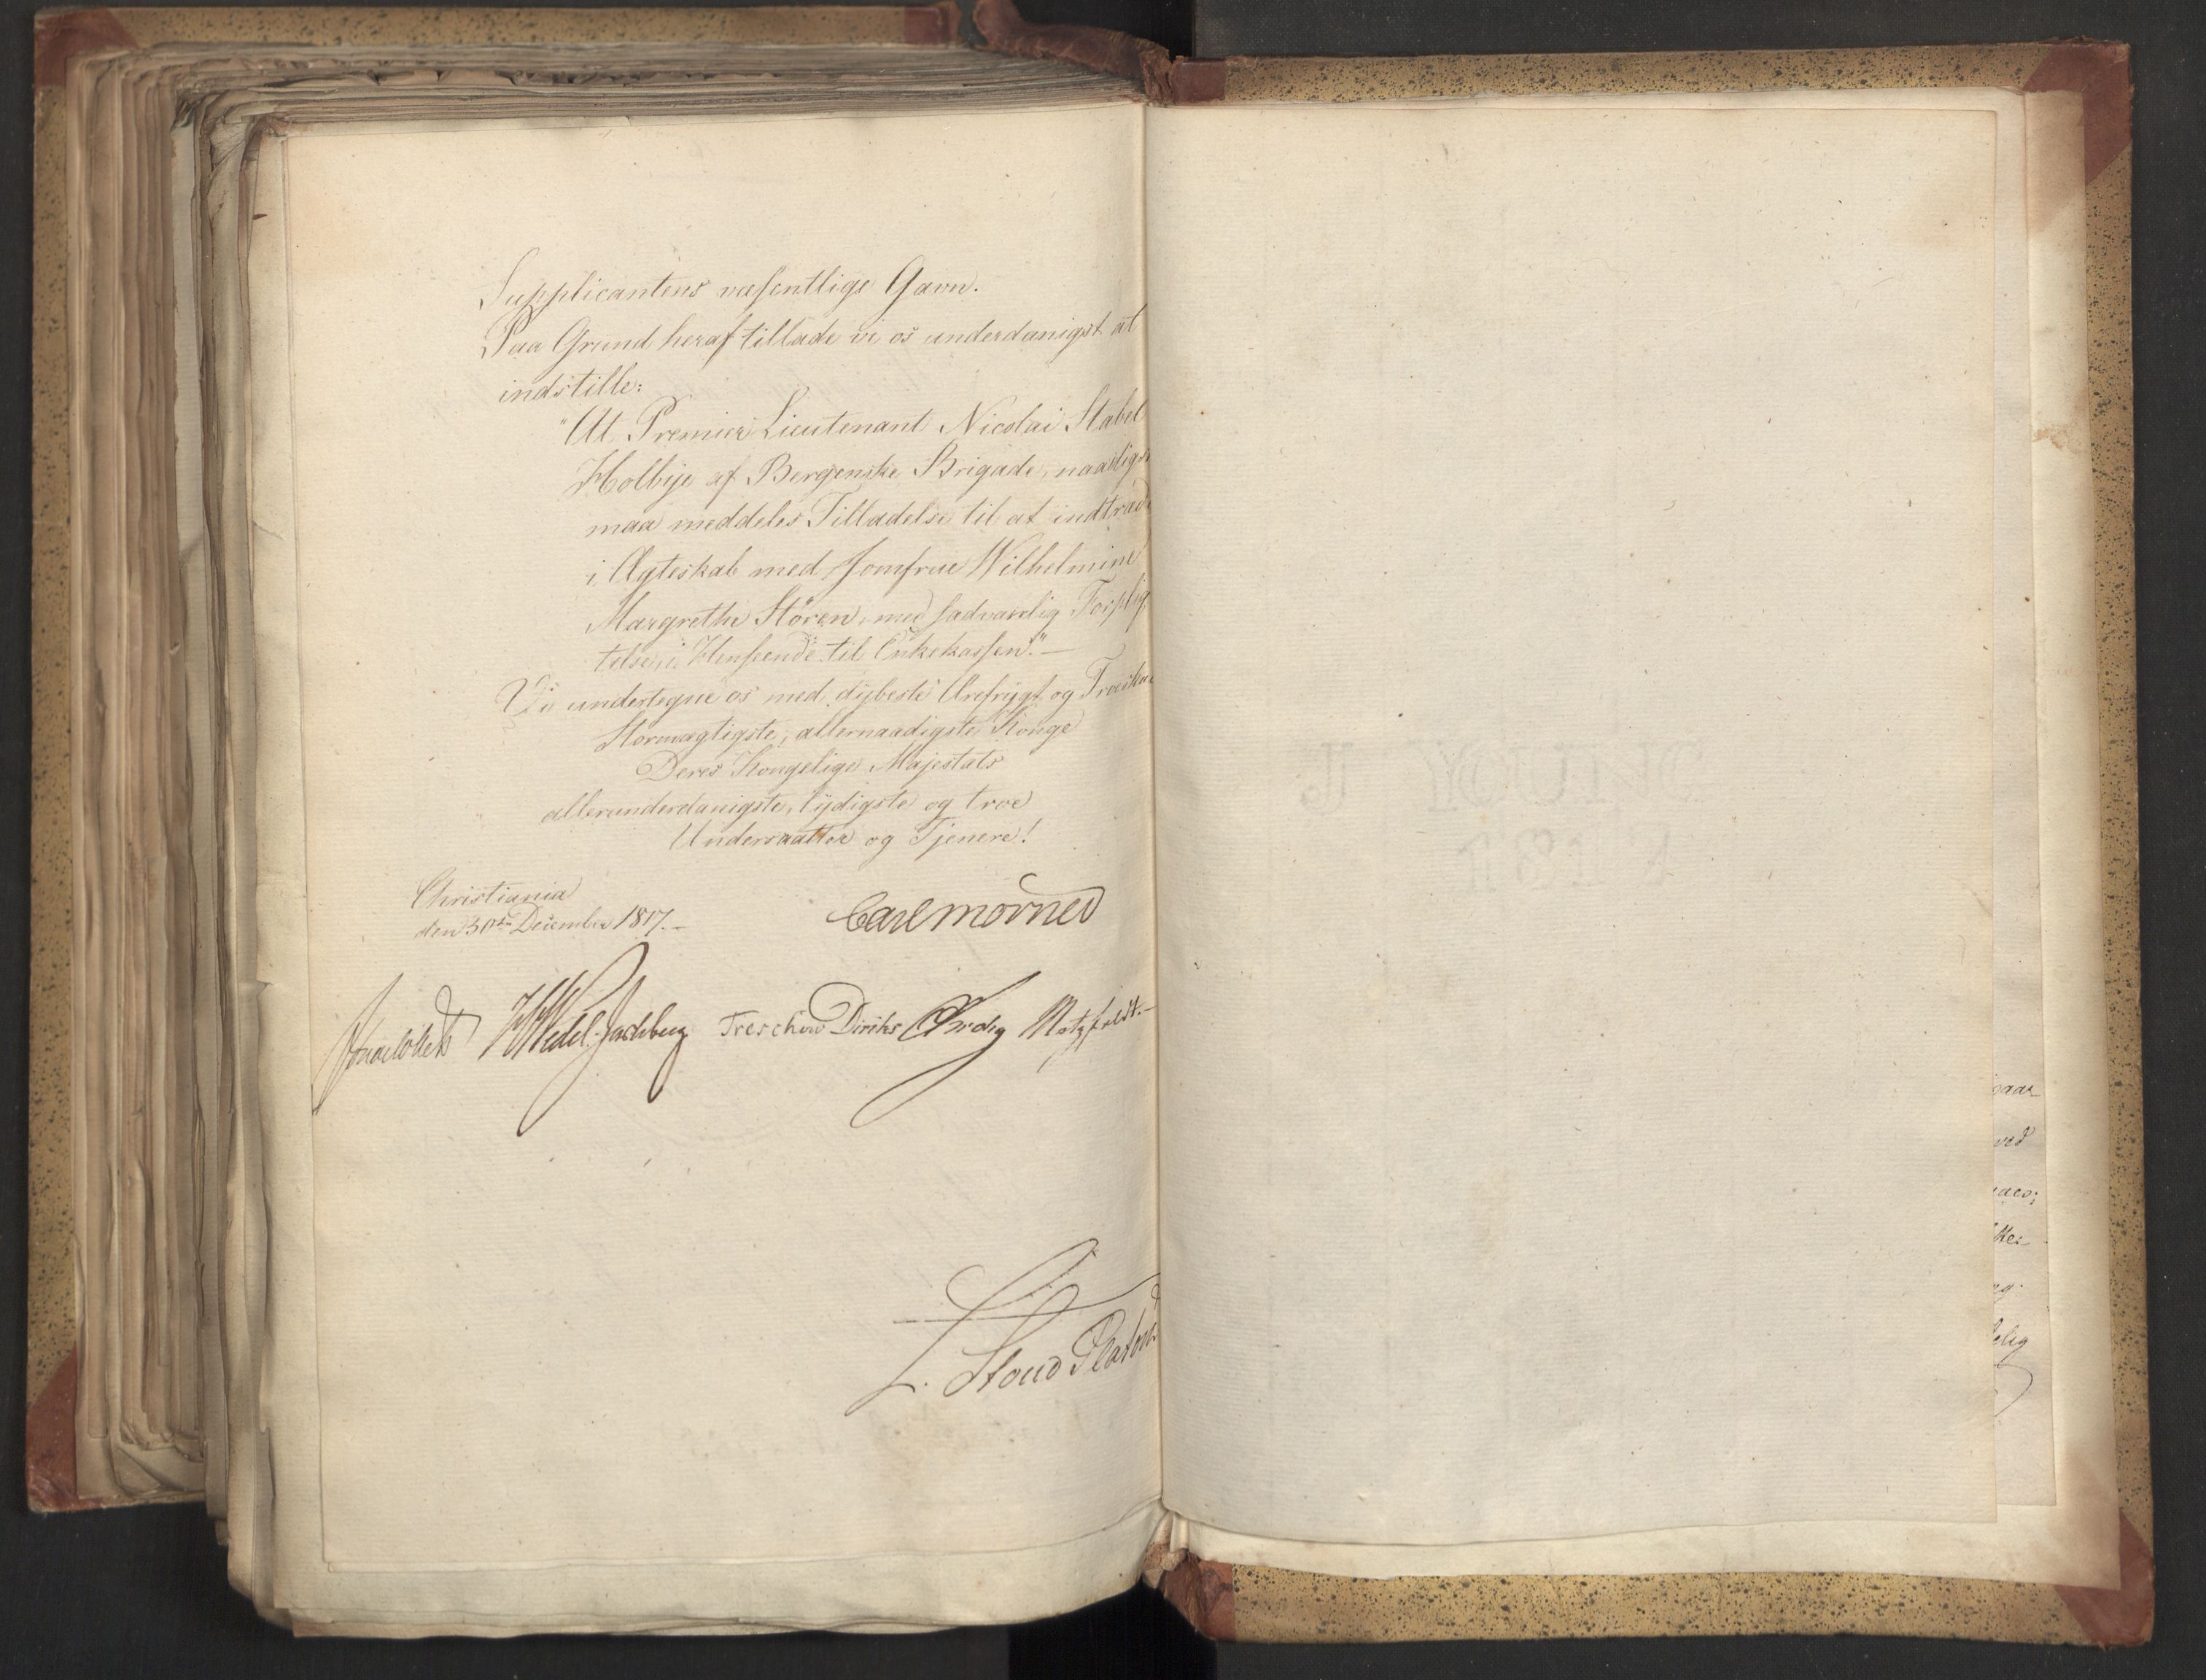 Supplicantens væsentlige Gavn.
Paa Grund heraf tillade vi os underdanigst at
indstille:
"At Premier Lieutenant Nicolai Stabel
Holbye af Bergenske Brigade, naadigst
maa meddeles Tilladelse til at indtræde
i Ægteskab med Jomfrue Wilhelmine
Margrethe Stören, med sædvanlig Forplig
telse i Henseende til Enkekassen."—
Vi undertegne os med dybeste Ærefrygt og Troeskab
Stormægtigste, allernaadigste Konge
Deres Kongelige Majestæts
allerunderdanigste, lydigste og troe
Undersaatter og Tjenere!
Christiania
den 30te December 1817.—
Carl Mörner
HWedel-Jarlsberg Treschow Diriks Motzfeldt.—
L. Stoud Platou
paar
ved